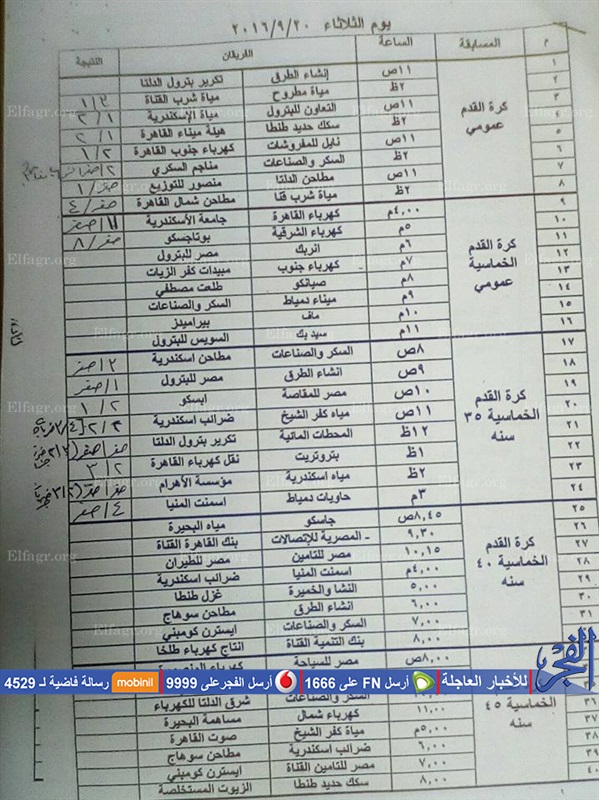 يوم الثلاثاء ٢٠١٦/٩/٢٠
م المسابقة الساعة الفريقان النتيجة
كرة القدم عمومي
١ ١١ص إنشاء الطرق تكرير بترول الدلتا
٢ ٢ظ مياة مطروح مياة شرب القناة ٣/١
٣ ١١ص التعاون للبترول مياة الإسكندرية ٢/١
٤ ٢ظ سكك حديد طنطا هيئة ميناء القاهرة ٢/١
٥ ١١ص نايل للمفروشات كهرباء جنوب القاهرة ١/٢
٦ ٢ظ السكر والصناعات مناجم السكري
٧ ١١ص مطاحن الدلتا منصور للتوزيع صفر/١
٨ ٢ظ مياة شرب قنا مطاحن شمال القاهرة صفر/٤
كرة القدم الخماسية عمومي
٩ ٤,٠٠م كهرباء القاهرة جامعة الأسكندرية
١٠ ٥م كهرباء الشرقية بوتاجسكو صفر/٨
١١ ٦م انربك مصر للبترول
١٢ ٧م كهرباء جنوب مبيدات كفر الزيات
١٣ ٨م صيانكو طلعت مصطفي
١٤ ٩م ميناء دمياط السكر والصناعات
١٥ ١٠م ماف بيراميدز
١٦ ١١م سيد بك السويس للبترول
كرة القدم الخماسية ٣٥ سنه
١٧ ٨ص السكر والصناعات مطاحن اسكندرية ٢/صفر
١٨ ٩ص انشاء الطرق مصر للبترول ١/صفر
١٩ ١٠ص مصر للمقاصة ابسكو ١/٢
٢٠ ١١ص مياه كفر الشيخ ضرائب اسكندرية
٢١ ١٢ظ المحطات المائية تكرير بترول الدلتا
٢٢ ١ظ بتروتريت نقل كهرباء القاهرة ٣/٢
٢٣ ٢ظ مياه اسكندرية مؤسسة الأهرام
٢٤ ٣م حاويات دمياط اسمنت المنيا ٤/صفر
كرة القدم الخماسية ٤٠ سنه
٢٥ ٨,٤٥ص جاسكو مياه البحيرة
٢٦ ٩,٣٠ المصرية للإتصالات بنك القاهرة القناة
٢٧ ١٠,١٥ مصر للتامين مصر للطيران
٢٨ ٤,٠٠م اسمنت المنيا ضرائب اسكندرية
٢٩ ٥,٠٠ النشا والخميرة غزل طنطا
٣٠ ٦,٠٠ انشاء الطرق مطاحن سوهاج
٣١ ٧,٠٠ السكر والصناعات ايسترن كومبني
٨,٠٠ بنك التنمية القناة انتاج كهرباء طلخا
٨,٠٠ص مصر للسياحة
الفجر للأخبار العاجلة أرسل FN على 1666 أرسل الفجر على 9999 mobinil رسالة فاضية لـ 4529
الخماسية ٤٥ سنه
السكر والصناعات شرق الدلتا للكهرباء
٣٦ ١١,٠٠ كهرباء شمال مساهمة البحيرة
٣٧ ٥,٠٠م مياة كفر الشيخ صوت القاهرة
٣٨ ٦,٠٠ ضرائب اسكندرية مطاحن سوهاج
٣٩ ٧,٠٠ مصر للتامين القناة ايسترن كومبني
٤٠ ٨,٠٠ سكك حديد طنطا الزيوت المستخلصة
Elfagr.org